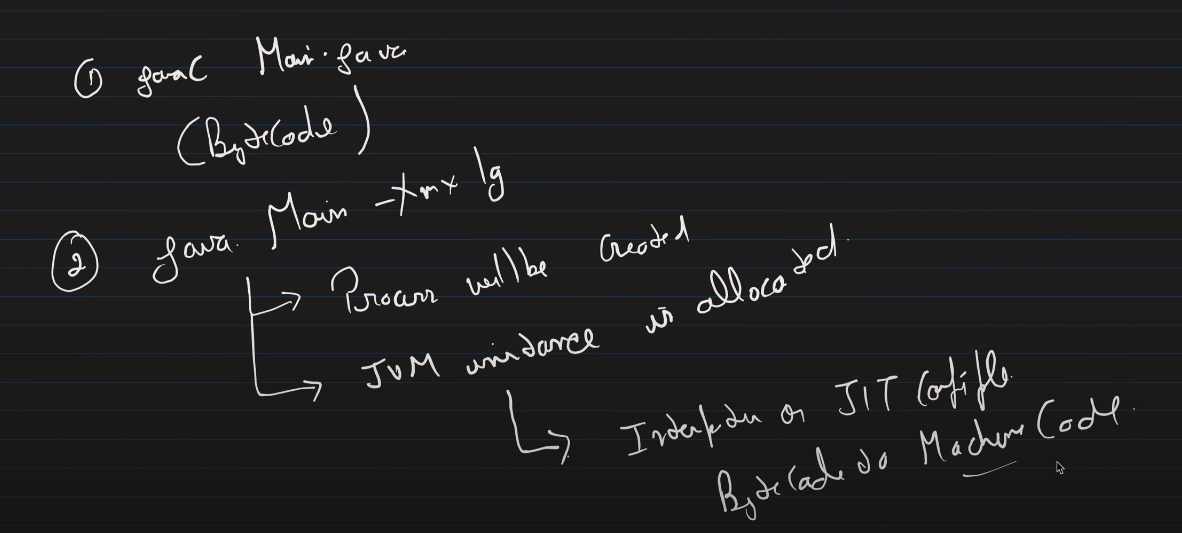 ① javac Main.java
(ByteCode)
② java Main -Xmx 1g
Process will be created
JVM instance is allocated.
Interpreter or JIT Compiler
ByteCode to Machine Code.